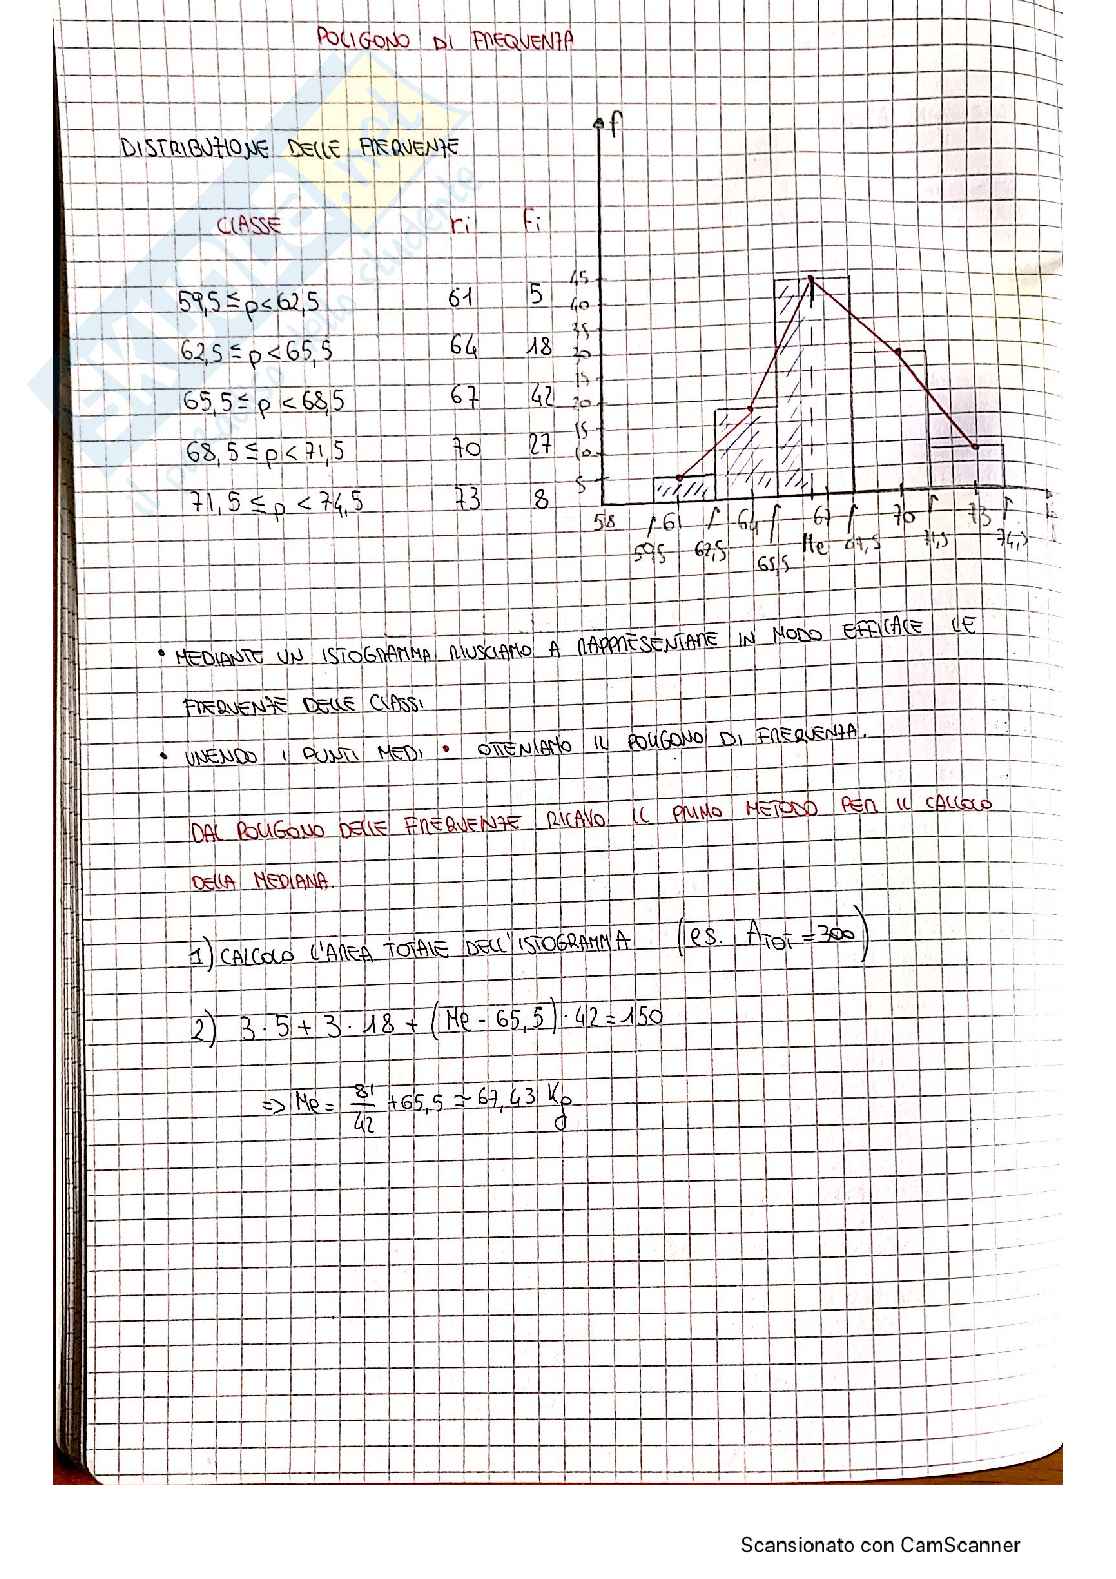 POLIGONO DI FREQUENZA
DISTRIBUZIONE DELLE FREQUENZE
CLASSE ri Fi
59,5 ≤ p < 62,5 61 5
62,5 ≤ p < 65,5 64 18
65,5 ≤ p < 68,5 67 42
68,5 ≤ p < 71,5 70 27
71,5 ≤ p < 74,5 73 8
f
45
40
35
30
25
20
15
10
5
58 61 64 67 70 73
59,5 62,5 65,5 Me 71,5 74,5
• MEDIANTE UN ISTOGRAMMA RIUSCIAMO A RAPPRESENTARE IN MODO EFFICACE LE
FREQUENZE DELLE CLASSI
• UNENDO I PUNTI MEDI • OTTENIAMO IL POLIGONO DI FREQUENZA.
DAL POLIGONO DELLE FREQUENZE RICAVO IL PRIMO METODO PER IL CALCOLO
DELLA MEDIANA.
1) CALCOLO L'AREA TOTALE DELL'ISTOGRAMMA (es. ATOT = 300)
2) 3·5 + 3·18 + (Me - 65,5)·42 = 150
=> Me = 81/42 + 65,5 = 67,43 Kg
Scansionato con CamScanner